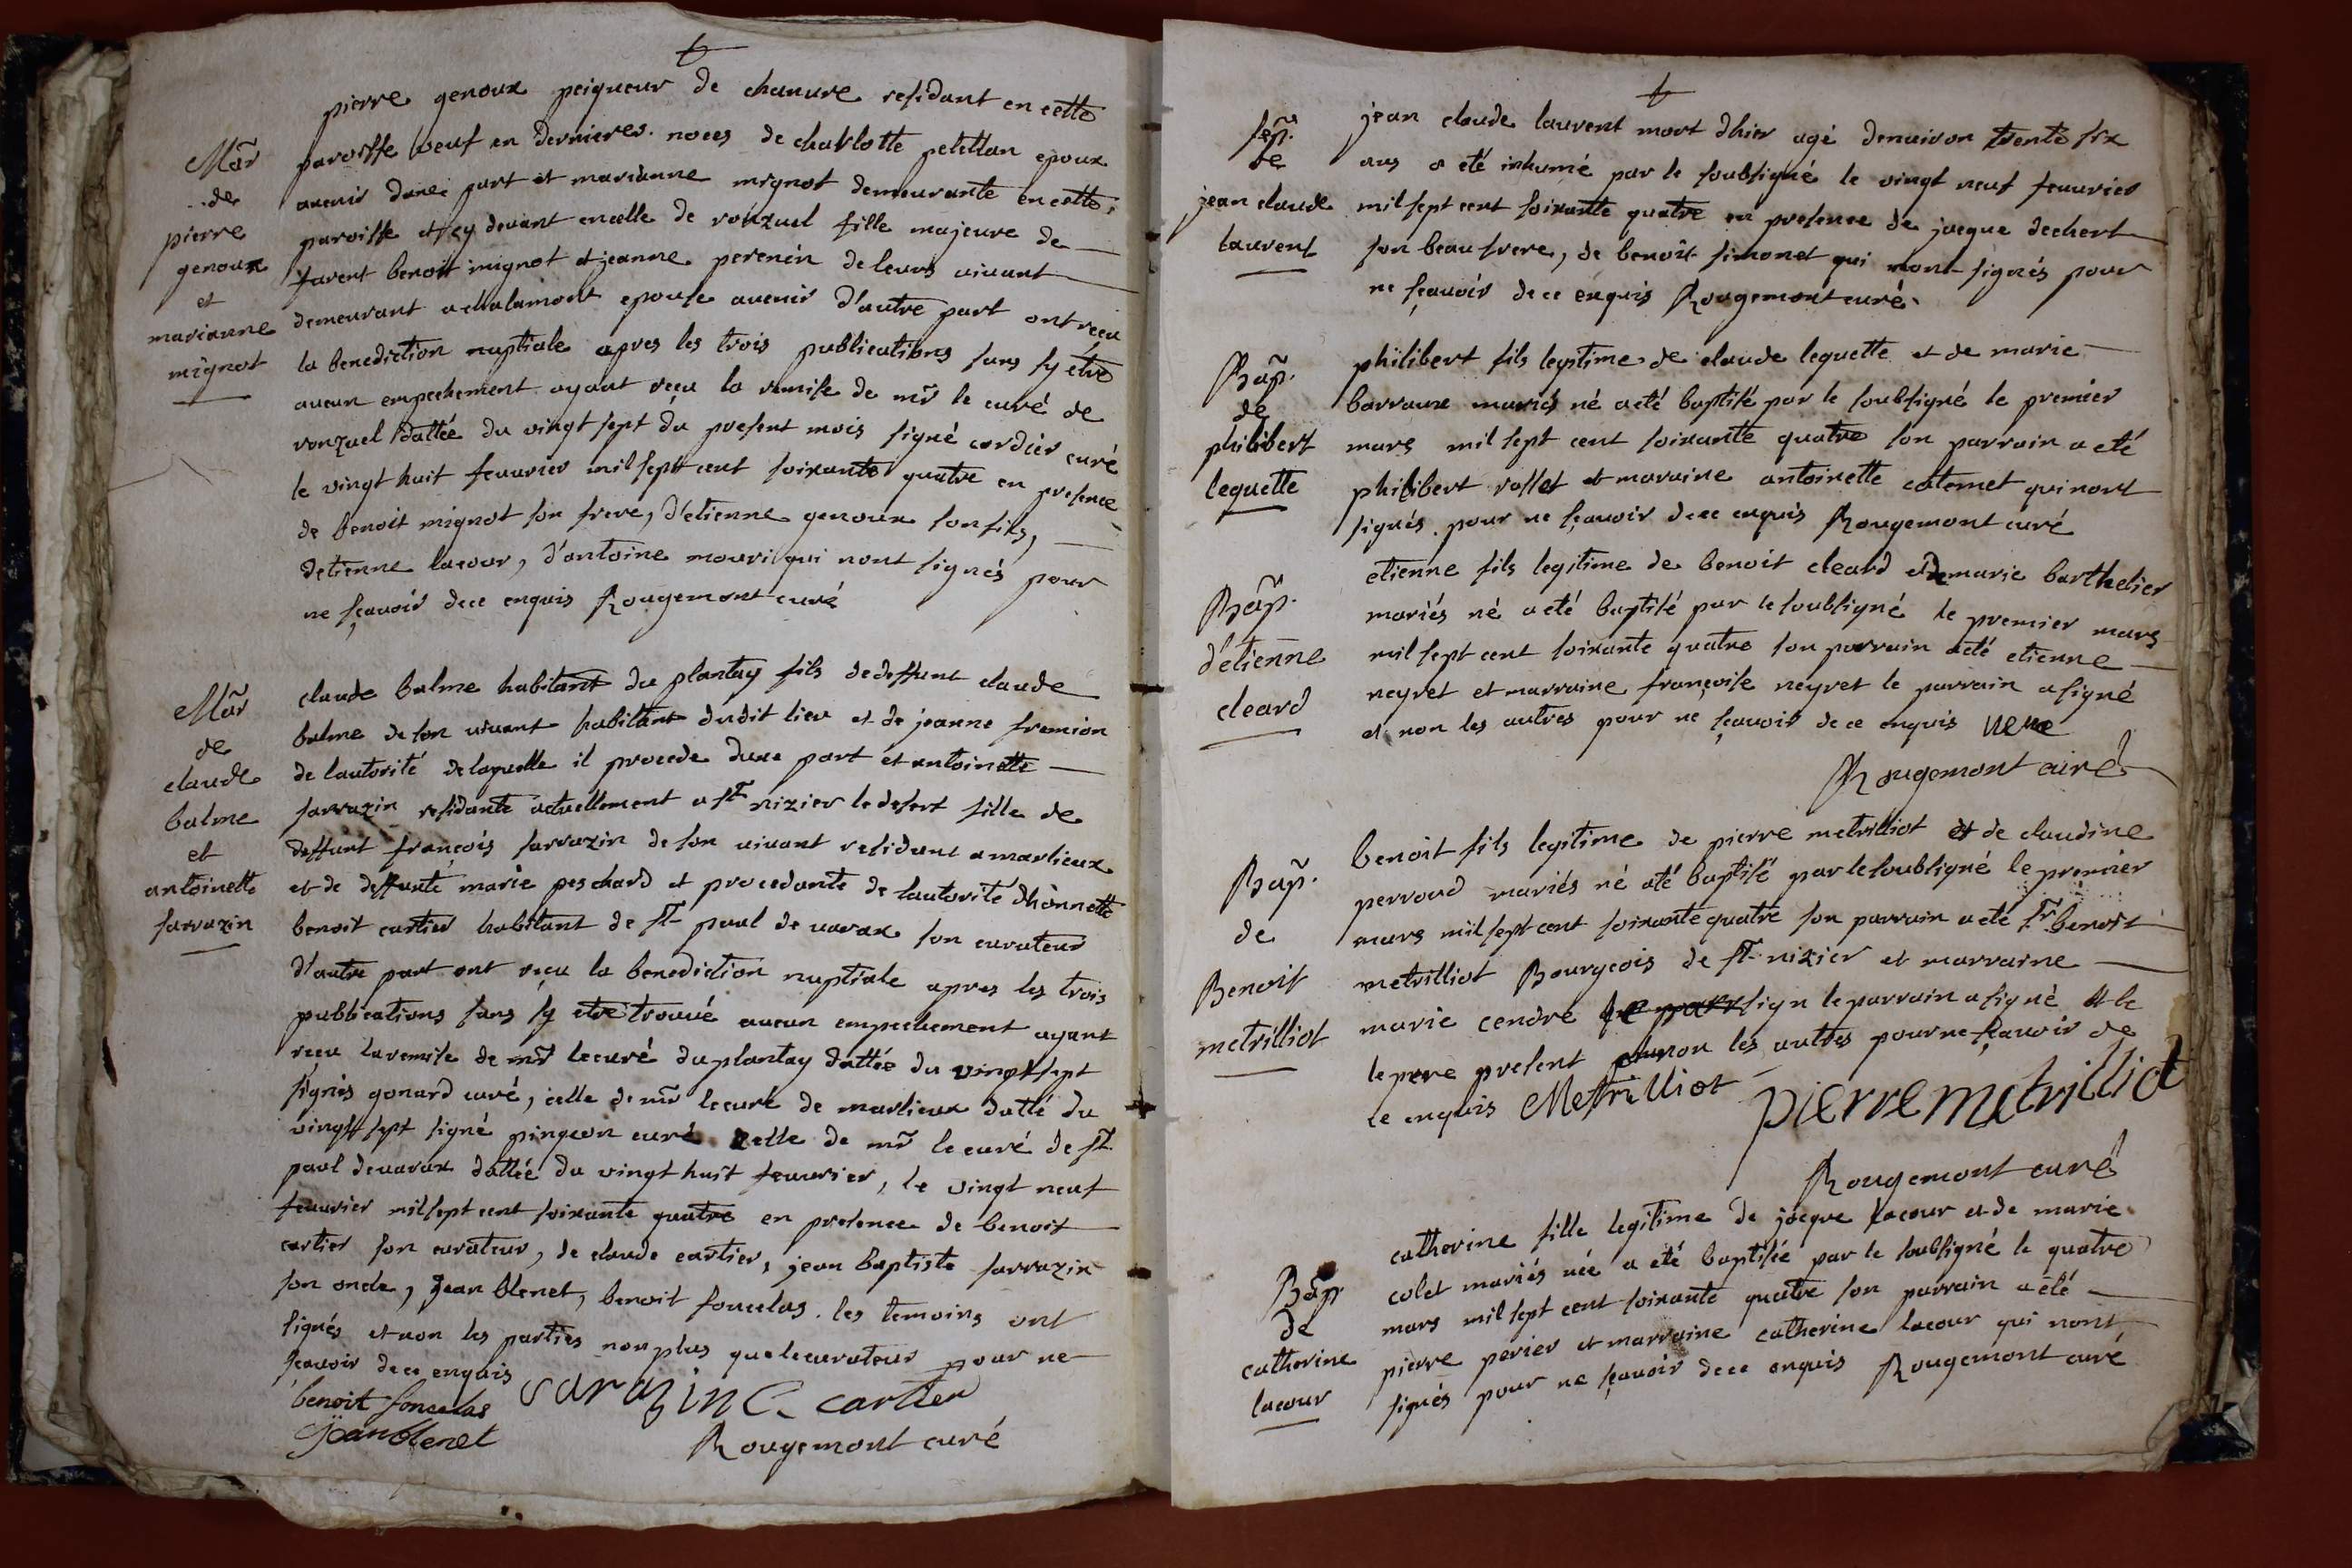 Mar
de
pierre
genoux
et
marianne
mignot
pierre genoux peigneur de chanvre residant en cette
paroisse veuf en dernieres noces de charlotte petettan epoux
avenir dune part et marianne mignot demeurante en cette
paroisse et cy devant en celle de ronzuel fille majeure de
furent benoit mignot et jeanne perenin de leurs vivant
demeurant a chalamont epouse avenir d'autre part ont reçu
la benediction nuptiale apres les trois publications sans sy etre
aucun empechement ayant reçu la remise de mr le curé de
ronzuel dattée du vingt sept du present mois signé cordier curé
le vingt huit feuvrier mil sept cent soixante quatre en presence
de benoit mignot son frere, d'etienne genoux son fils,
detienne lacour, d'antoine mouri qui nont signés pour
ne sçavoir de ce enquis Rougemont curé
Mar
de
claude
balme
et
antoinette
sarrazin
claude balme habitant du plantay fils de deffunt claude
balme de son vivant habitant dudit lieu et de jeanne fremion
de lautorité de laquelle il procede dune part et antoinette
sarrazin residante actuellement a st nizier le desert fille de
deffunt françois sarrazin de son vivant residant a marlieux
et de deffunte marie peschard et procedante de lautorité dhonnette
benoit cartier habitant de st paul de varax son curateur
d'autre part ont reçu la benediction nuptiale apres les trois
publications sans sy etre trouvé aucun empechement ayant
reçu la remise de mr le curé du plantay dattée du vingt sept
signés gonard curé, celle de mr le curé de marlieux datté du
vingt sept signé pingeon curé celle de mr le curé de st
paul de varax dattée du vingt huit feuvrier, le vingt neuf
feuvrier mil sept cent soixante quatre en presence de benoit
cartier son curateur, de claude cartier, jean baptiste sarrazin
son oncle, jean blenet, benoit foncelas. les temoins ont
signés et non les parties non plus que le curateur pour ne
sçavoir de ce enquis
benoit foncelas sarazin C. cartier
Jean blenet Rougemont curé
sep.
de
jean claude
laurent
jean claude laurent mort dhier agé denviron trente six
ans a eté inhumé par le soubsigné le vingt neuf feuvrier
mil sept cent soixante quatre en presence de jacque dechert
son beau frere, de benoit simonet qui nont signés pour
ne sçavoir de ce enquis Rougemont curé.
Bap.
de
philibert
lequette
philibert fils legitime de claude lequette et de marie
barraux mariés né a eté baptisé par le soubsigné le premier
mars mil sept cent soixante quatre son parrain a eté
philibert rollet et maraine antoinette catemet qui nont
signés. pour ne sçavoir de ce enquis Rougemont curé
Bap.
d'etienne
cleard
etienne fils legitime de benoit cleard et de marie barthelier
mariés né a eté baptisé par le soubsigné le premier mars
mil sept cent soixante quatre son parrain a eté etienne
neyret et marraine françoise neyret le parrain a signé
et non les autres pour ne sçavoir de ce enquis
Rougemont curé
Bap.
de
Benoit
metrilliot
benoit fils legitime de pierre metrilliot et de claudine
perroud mariés né a eté baptisé par le soubsigné le premier
mars mil sept cent soixante quatre son parrain a eté sr benoit
metrilliot Bourgeois de st nizier et marraine
marie cendre sign le parrain a signé et le
le pere present non les autres pour ne sçavoir de
ce enquis Metrilliot pierre metrilliot
Rougemont curé
Bap
de
catherine
lacour
catherine fille legitime de jacque lacour et de marie
colet mariés née a eté baptisée par le soubsigné le quatre
mars mil sept cent soixante quatre son parrain a eté
pierre perier et marraine catherine lacour qui nont
signés pour ne sçavoir de ce enquis Rougemont curé